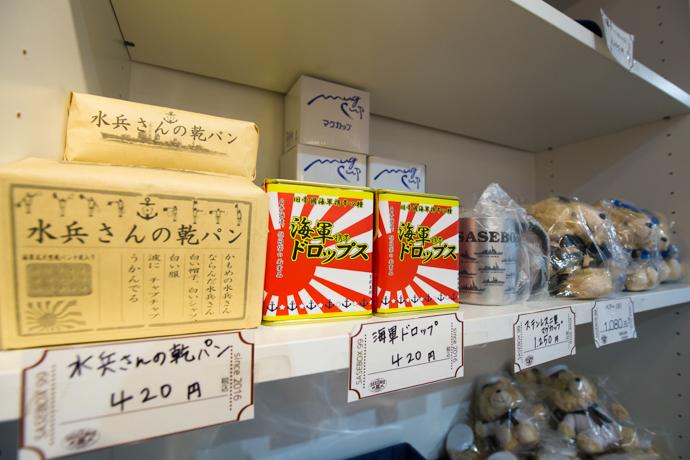 水兵さんの乾パン
水兵さんの乾パン
かもめの水兵さん
ならんだ水兵さん
白い帽子 白いシャツ
白い服
波に チャプチャプ
うかんでる
旧帝国海軍
海軍
ドロップス
海軍
ドロップス
マグカップ
SASEBO
SASEBOX 99
水兵さんの乾パン
420円
since 2016
SASEBOX 99
海軍ドロップ
420円
since 2016
ステンレス二重
マグカップ
1,250円
1,080円